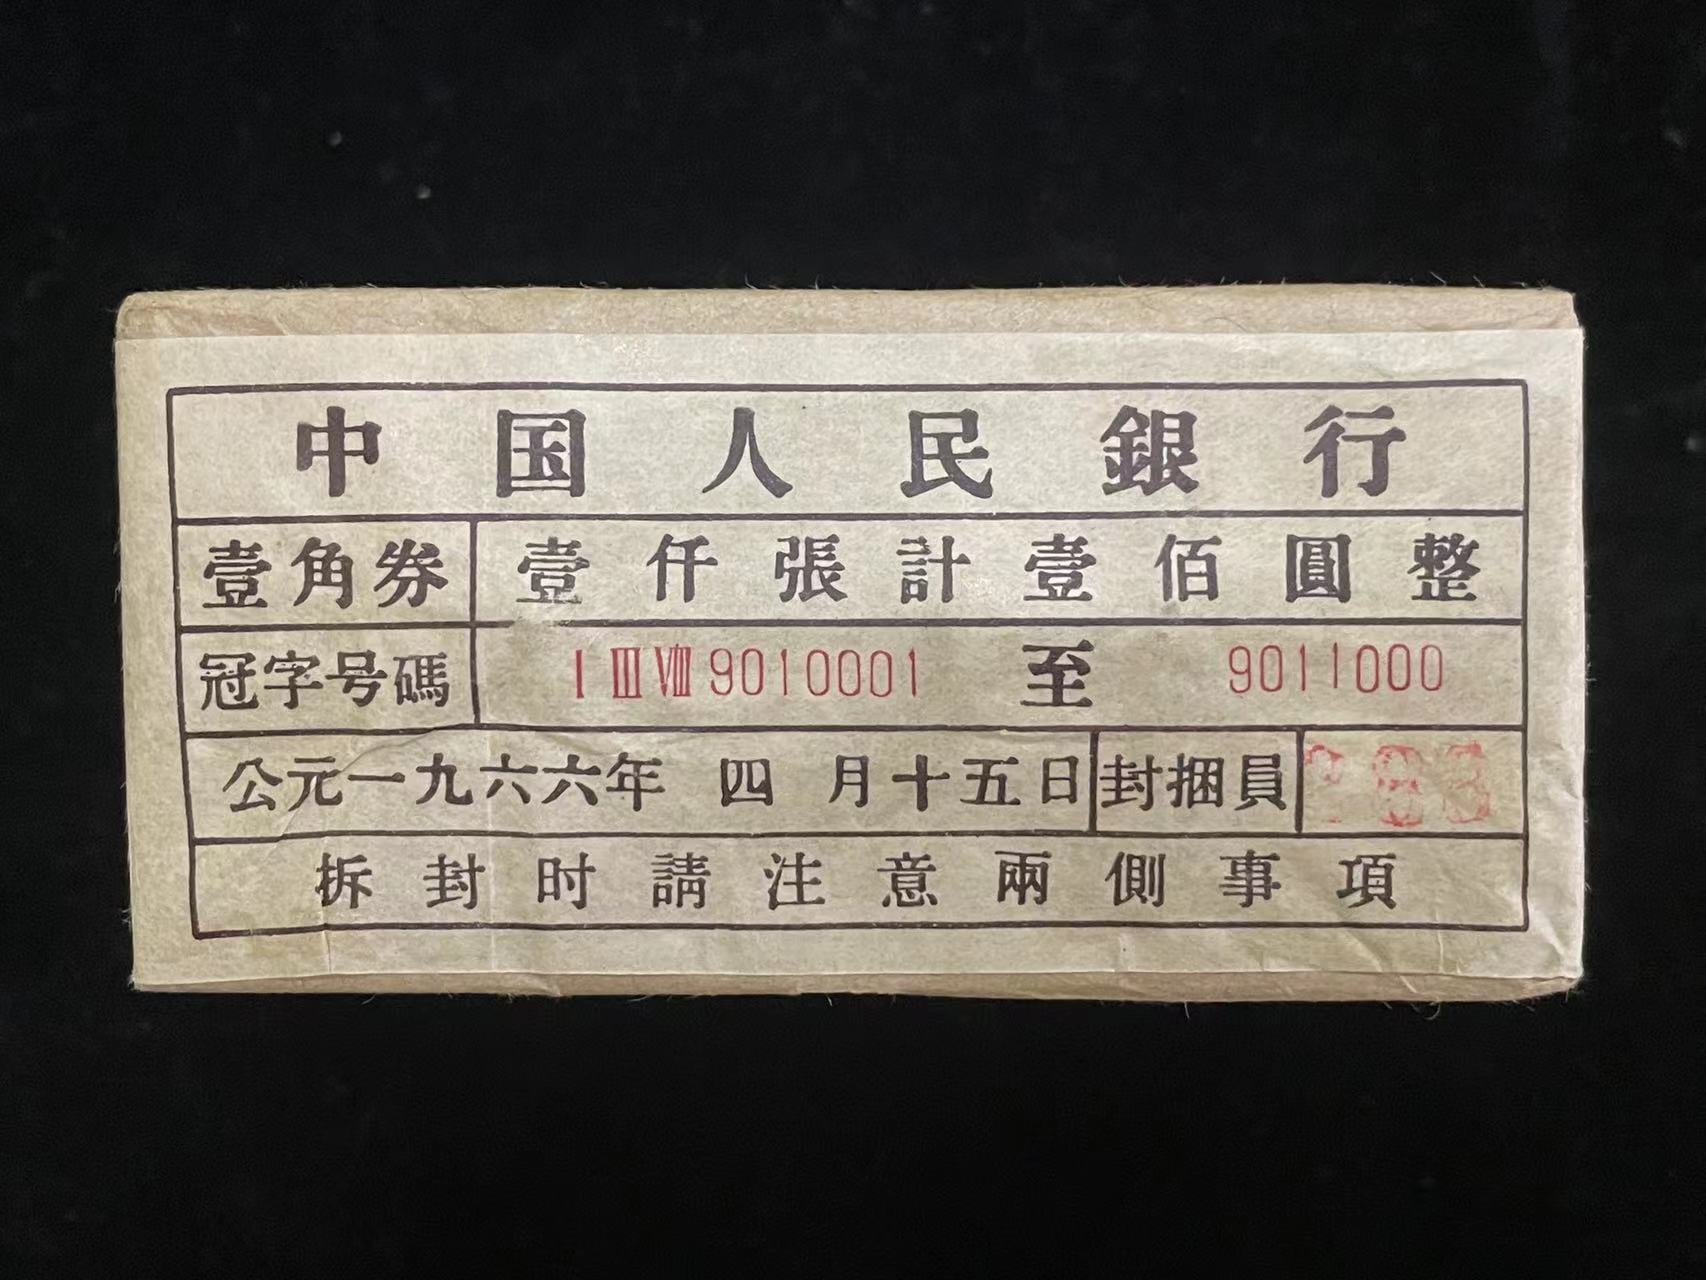 中国人民銀行
壹角券 壹仟張計壹佰圓整
冠字号碼 I III VIII 9010001 至 9011000
公元一九六六年 四 月十五日 封捆員
拆封时請注意兩側事項